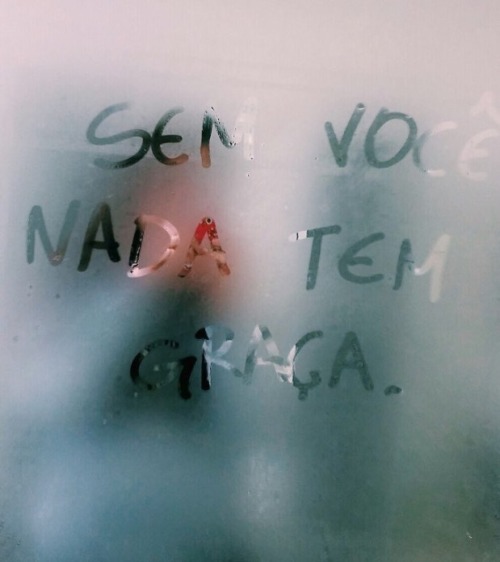 SEM VOCÊ
NADA TEM
GRAÇA.